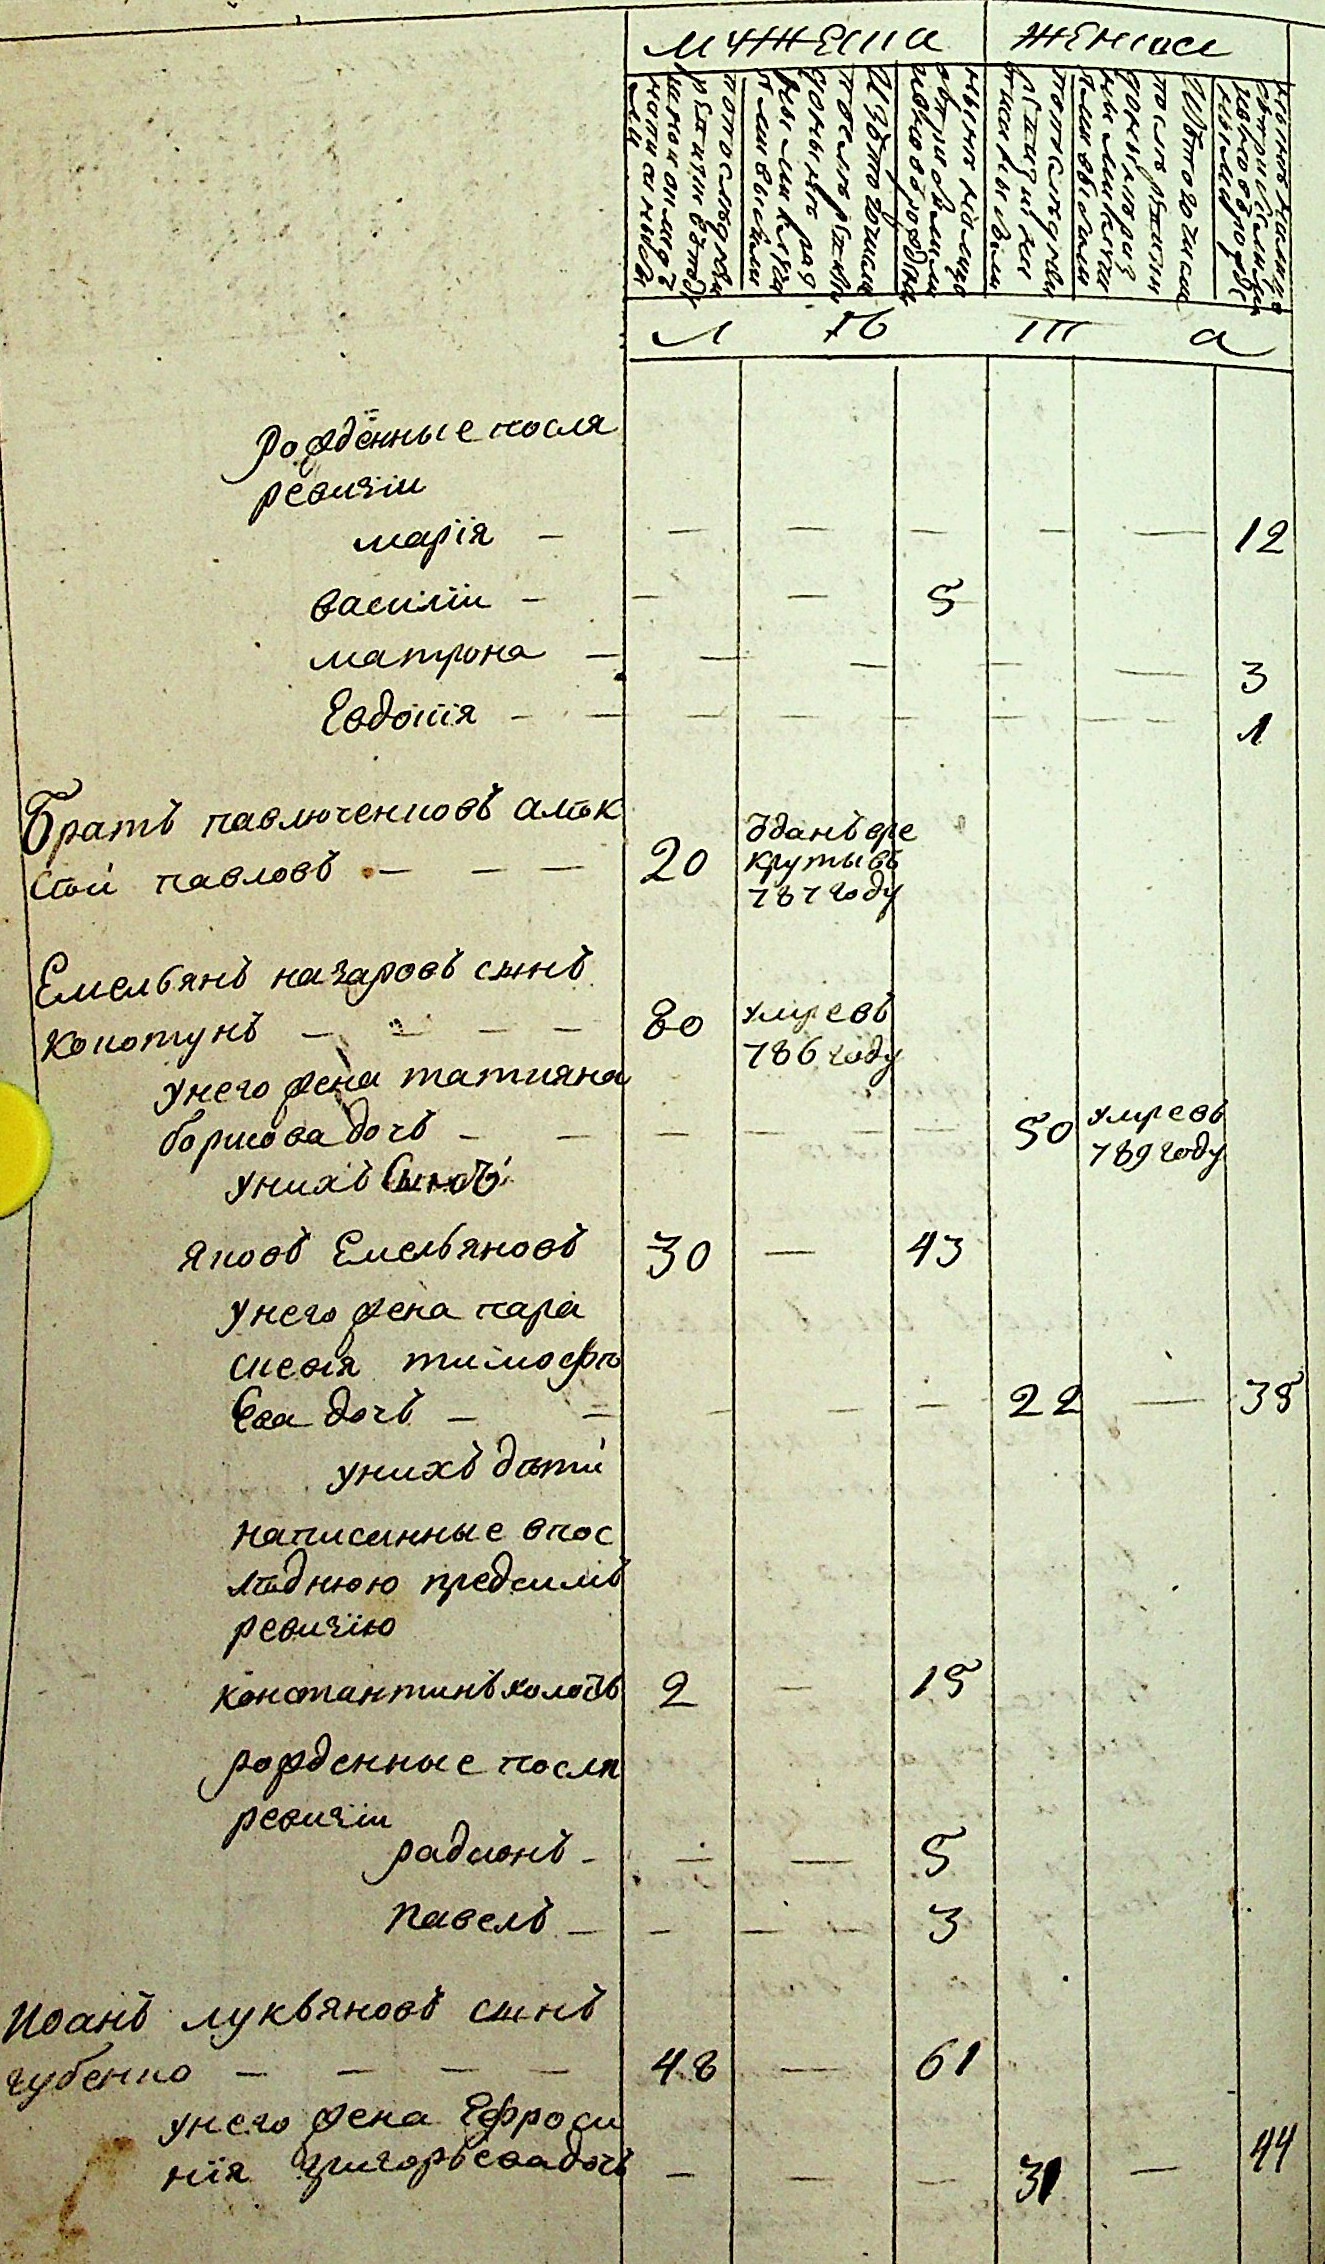 мужеска женска
по последней
ревизии
из того числа
после ревизии
лѣта
Рожденные посля
ревизіи
марія — — — — — — 12
василіи — — — 5
матрона — — — — — 3
Евдокія — — — — — — — 1
Братъ павлюченковъ алѣк
сѣй павловъ — — — 20 ѣданъ вре
круты въ
787 году
Емельянъ назаровъ сынъ
Конотунъ — — — — 80 умре въ
786 году
у него жена татияна
борисова дочь — — — — — — 50 умре въ
789 году
у нихъ Сынъ
яковъ Емельяновъ 30 — 43
у него жена пара
скевія тимофѣ
Ева дочь — — — — — 22 — 35
у нихъ дѣти
написанные впос
лѣднюю пред симъ
ревизію
константинъ холостъ 2 — 15
рожденные послѣ
ревизіи
радионъ — — — 5
павелъ — — — 3
Иоанъ лукьяновъ сынъ
губенко — — — — 48 — 61
у него жена Ефроси
нія григорьева дочь — — — 31 — 44